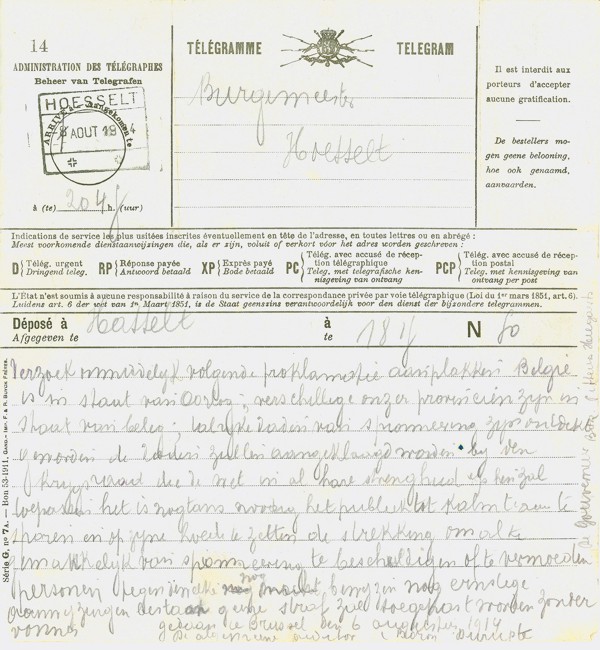 14
ADMINISTRATION DES TÉLÉGRAPHES
Beheer van Telegrafen
TÉLÉGRAMME TELEGRAM
HOESSELT
ARRIVÉ Aangekomen te
8 AOUT 19 4
à (te) 20 4 h. (uur)
Burgemeester
Hoesselt
Il est interdit aux
porteurs d'accepter
aucune gratification.
De bestellers mo-
gen geene belooning,
hoe ook genaamd,
aanvaarden.
Indications de service les plus usitées inscrites éventuellement en tête de l'adresse, en toutes lettres ou en abrégé :
Meest voorkomende dienstaanwijzingen die, als er zijn, voluit of verkort vóór het adres worden geschreven :
D Télég. urgent Dringend teleg.
RP Réponse payée Antwoord betaald
XP Exprès payé Bode betaald
PC Télég. avec accusé de récep-
tion télégraphique
Teleg. met telegrafische ken-
nisgeving van ontvangst
PCP Télég. avec accusé de récep-
tion postal
Teleg. met kennisgeving van
ontvangst per post
L'État n'est soumis à aucune responsabilité à raison du service de la correspondance privée par voie télégraphique (Loi du 1er mars 1851, art. 6).
Luidens art. 6 der wet van 1n Maart 1851, is de Staat geenszins verantwoordelijk voor den dienst der bijzondere telegrammen.
Déposé à Hasselt à 18 N 80
Afgegeven te te
Verzoek onmiddelyk volgende proklamatie aanplakken België
is in staat van oorlog ; verschillige onzer provinciën zyn in
staat van beleg ; talryke daden van spionneering zyn ontdekt
geworden de daders zullen aangeklaagd worden by den
krygsraad die de wet in al hare strengheid op hen zal
toepassen het is nogtans noodig het publiek tot kalmte aan te
sporen en op zyne hoede te zetten de strekking om al te
gemakkelyk van spionneering te beschuldigen of te vermoeden
personen tegen dewelke nog bewyzen nog ernstige
aanwyzingen bestaan geene straf zal toegepast worden zonder
vonnis
gedaan te Brussel den 6 augustus 1914
De algemeene auditor
De Gouverneur
Série G, no 7A. — Bon 53-1911.